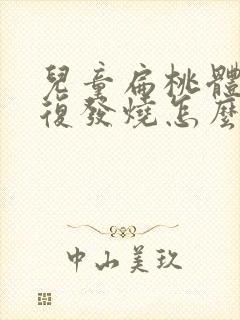 兒童扁桃體
復發燒怎麼
中山美玖